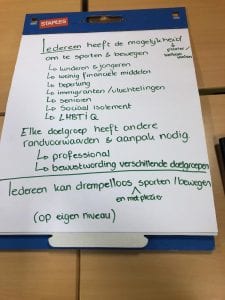 STAPLES
Iedereen heeft de mogelijkheid
om te sporten & bewegen
↓ plezier/
↳ kinderen & jongeren
↳ weinig financiële middelen
↳ beperking
↳ immigranten/vluchtelingen
↳ senioren
↳ Sociaal isolement
↳ LHBTIQ
Elke doelgroep heeft andere
randvoorwaarden & aanpak nodig.
↳ professional
↳ bewustwording verschillende doelgroepen
Iedereen kan drempelloos sporten/bewegen
en met plezier
(op eigen niveau)